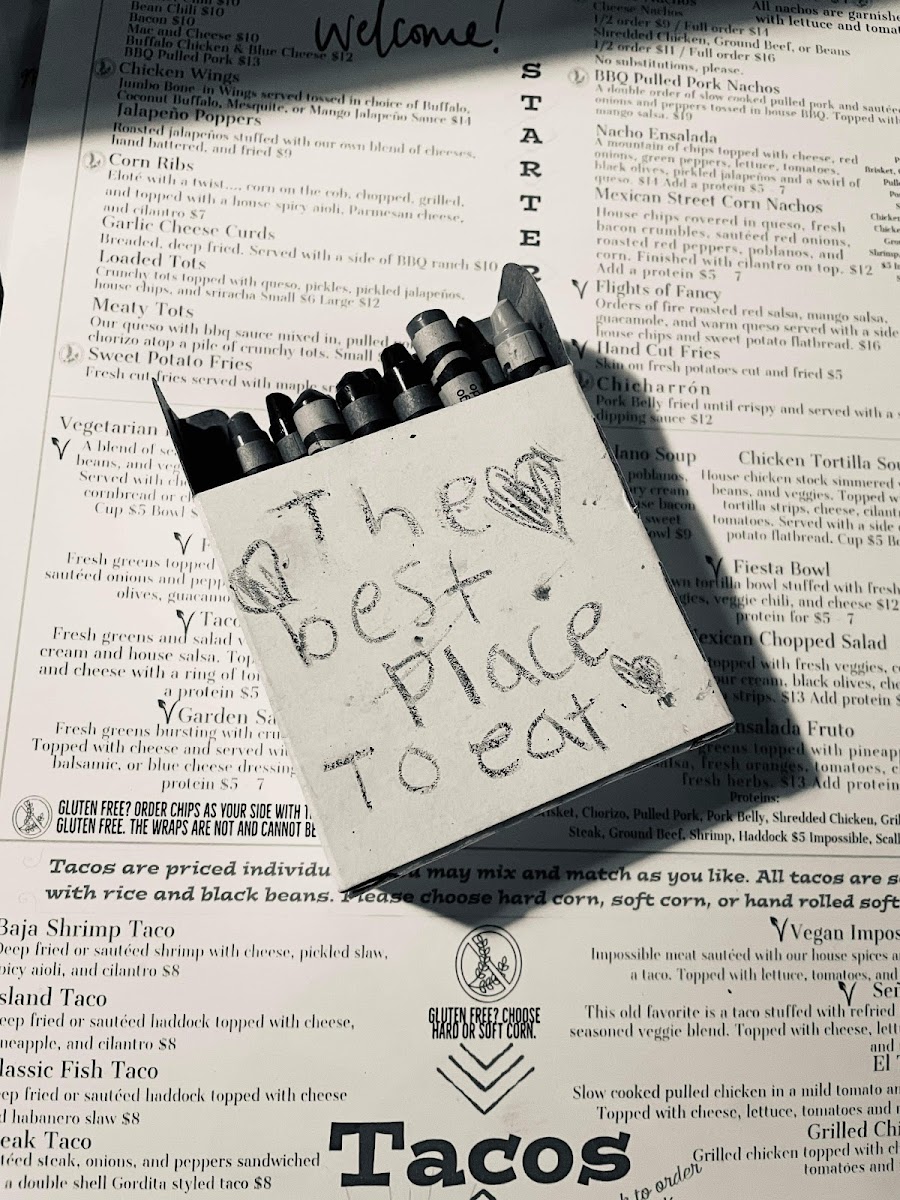 Bean Chili $10
Bacon $10
Mac and Cheese $10
Buffalo Chicken & Blue Cheese $12
BBQ Pulled Pork $13
Chicken Wings
Jumbo Bone-in Wings served tossed in choice of Buffalo,
Coconut Buffalo, Mesquite, or Mango Jalapeño Sauce $14
Jalapeño Poppers
Roasted jalapeños stuffed with our own blend of cheeses,
hand battered, and fried $9
Corn Ribs
Eloté with a twist.... corn on the cob, chopped, grilled,
and topped with a house spicy aioli, Parmesan cheese,
and cilantro $7
Garlic Cheese Curds
Breaded, deep fried. Served with a side of BBQ ranch $10
Loaded Tots
Crunchy tots topped with queso, pickles, pickled jalapeños,
house chips, and sriracha Small $6 Large $12
Meaty Tots
Our queso with bbq sauce mixed in, pulled
chorizo atop a pile of crunchy tots. Small
Sweet Potato Fries
Fresh cut fries served with maple
welcome!
S
T
A
R
T
E
Cheese Nachos
1/2 order $9 / Full order $14
Shredded Chicken, Ground Beef, or Beans
1/2 order $11 / Full order $16
No substitutions, please.
All nachos are
with lettuce and
BBQ Pulled Pork Nachos
A double order of slow cooked pulled pork and
onions and peppers tossed in house BBQ. Topped with
mango salsa. $19
Nacho Ensalada
A mountain of chips topped with cheese, red
onions, green peppers, lettuce, tomatoes,
black olives, pickled jalapeños and a swirl of
queso. $14 Add a protein $5 - 7
Mexican Street Corn Nachos
House chips covered in queso, fresh
bacon crumbles, sautéed red onions,
roasted red peppers, poblanos, and
corn. Finished with cilantro on top. $12
Add a protein $5 7
Flights of Fancy
Orders of fire roasted red salsa, mango salsa,
guacamole, and warm queso served with a side
house chips and sweet potato flatbread. $16
Hand Cut Fries
Skin on fresh potatoes cut and fried $5
Chicharrón
Pork Belly fried until crispy and served with a
dipping sauce $12
The
best
Place
To eat
Vegetarian
A blend of
beans, and
Served with
cornbread or
Cup $5 Bowl
Fresh greens topped
sautéed onions and
olives,
Fresh greens and salad
cream and house salsa. Top
and cheese with a ring of
a protein $5
Garden
Fresh greens bursting with
Topped with cheese and served
balsamic, or blue cheese dressing
protein $5 7
Soup
poblanos,
Chicken Tortilla
House chicken stock simmered
beans, and veggies. Topped
tortilla strips, cheese,
tomatoes. Served with a side
potato flatbread. Cup $5
Fiesta Bowl
tortilla bowl stuffed with fresh
veggie chili, and cheese $12
protein for $5 7
Chopped Salad
topped with fresh veggies,
cream, black olives,
strips. $13 Add protein
Fruto
greens topped with
fresh oranges, tomatoes,
fresh herbs. $13 Add protein
Proteins:
Chorizo, Pulled Pork, Pork Belly, Shredded Chicken,
Steak, Ground Beef, Shrimp, Haddock $5 Impossible,
GLUTEN FREE? ORDER CHIPS AS YOUR SIDE WITH
GLUTEN FREE. THE WRAPS ARE NOT AND CANNOT BE
Tacos are priced may mix and match as you like. All tacos are
with rice and black beans. Please choose hard corn, soft corn, or hand rolled soft
Baja Shrimp Taco
Deep fried or sautéed shrimp with cheese, pickled slaw,
spicy aioli, and cilantro $8
Island Taco
deep fried or sautéed haddock topped with cheese,
pineapple, and cilantro $8
Classic Fish Taco
deep fried or sautéed haddock topped with cheese
and habanero slaw $8
Steak Taco
sautéed steak, onions, and peppers sandwiched
a double shell Gordita styled taco $8
GLUTEN FREE? CHOOSE
HARD OR SOFT CORN.
Tacos
Vegan
Impossible meat sautéed with our house spices
a taco. Topped with lettuce, tomatoes, and
This old favorite is a taco stuffed with refried
seasoned veggie blend. Topped with cheese,
and
El
Slow cooked pulled chicken in a mild tomato
Topped with cheese, lettuce, tomatoes and
Grilled
Grilled chicken topped with
tomatoes and
to order